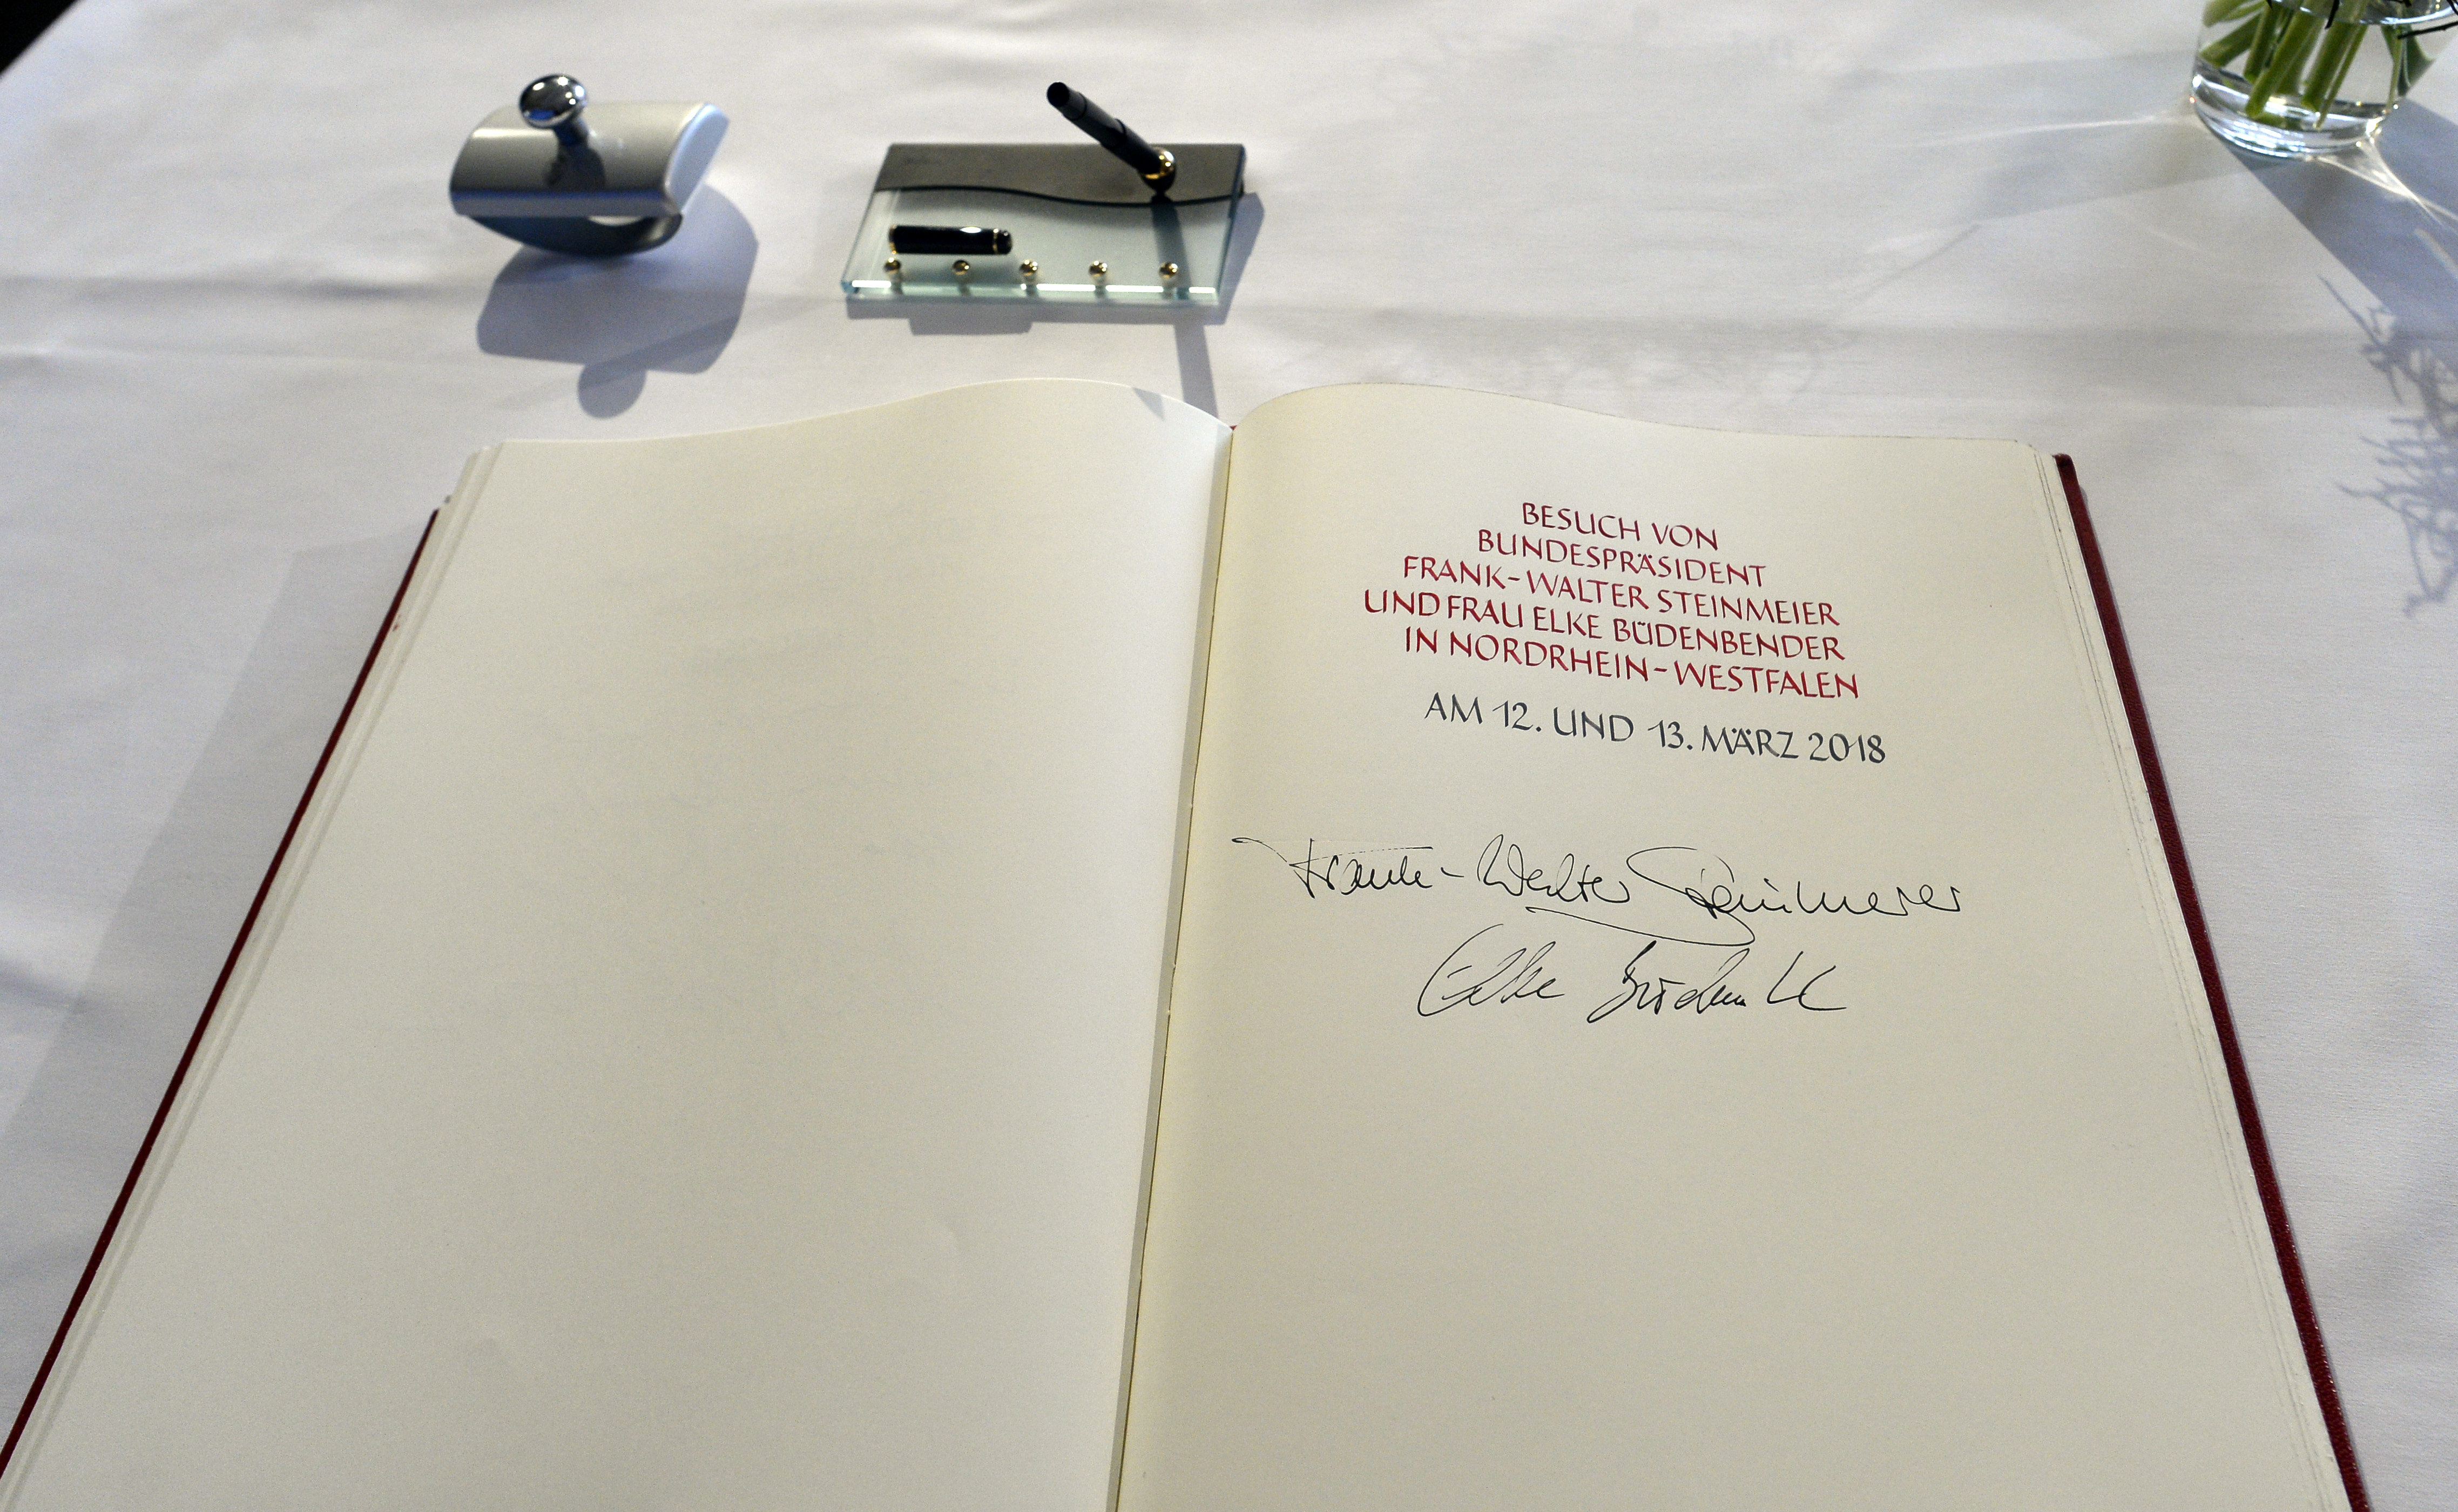 BESUCH VON
BUNDESPRÄSIDENT
FRANK-WALTER STEINMEIER
UND FRAU ELKE BÜDENBENDER
IN NORDRHEIN-WESTFALEN
AM 12. UND 13. MÄRZ 2018
Frank-Walter Steinmeier
Elke